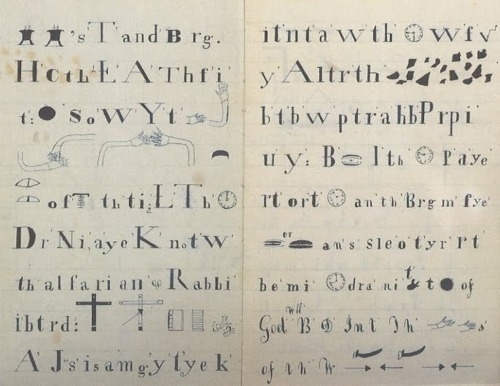 's T and Brg.
HcthEAThfi
t: sowYt
of T thtigETh
Dr Ni, aye K not W
thalfarian Rabbi
ibtrd:
A Js is am g, y ty e k
itntawth wfv
y Altrth
btbwptrahbPrpi
uy: B lth paye
rt ort anth Brgm fye
or
an's sleotyr rt
bemi drani t of
will
God B Int Th s
of th W